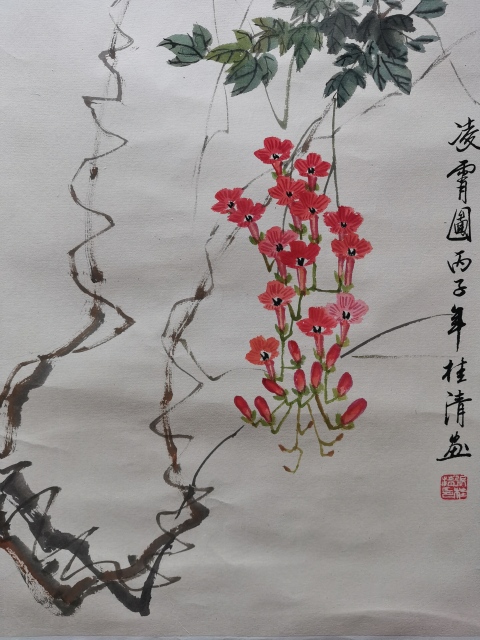 凌霄圖丙子年桂清畫